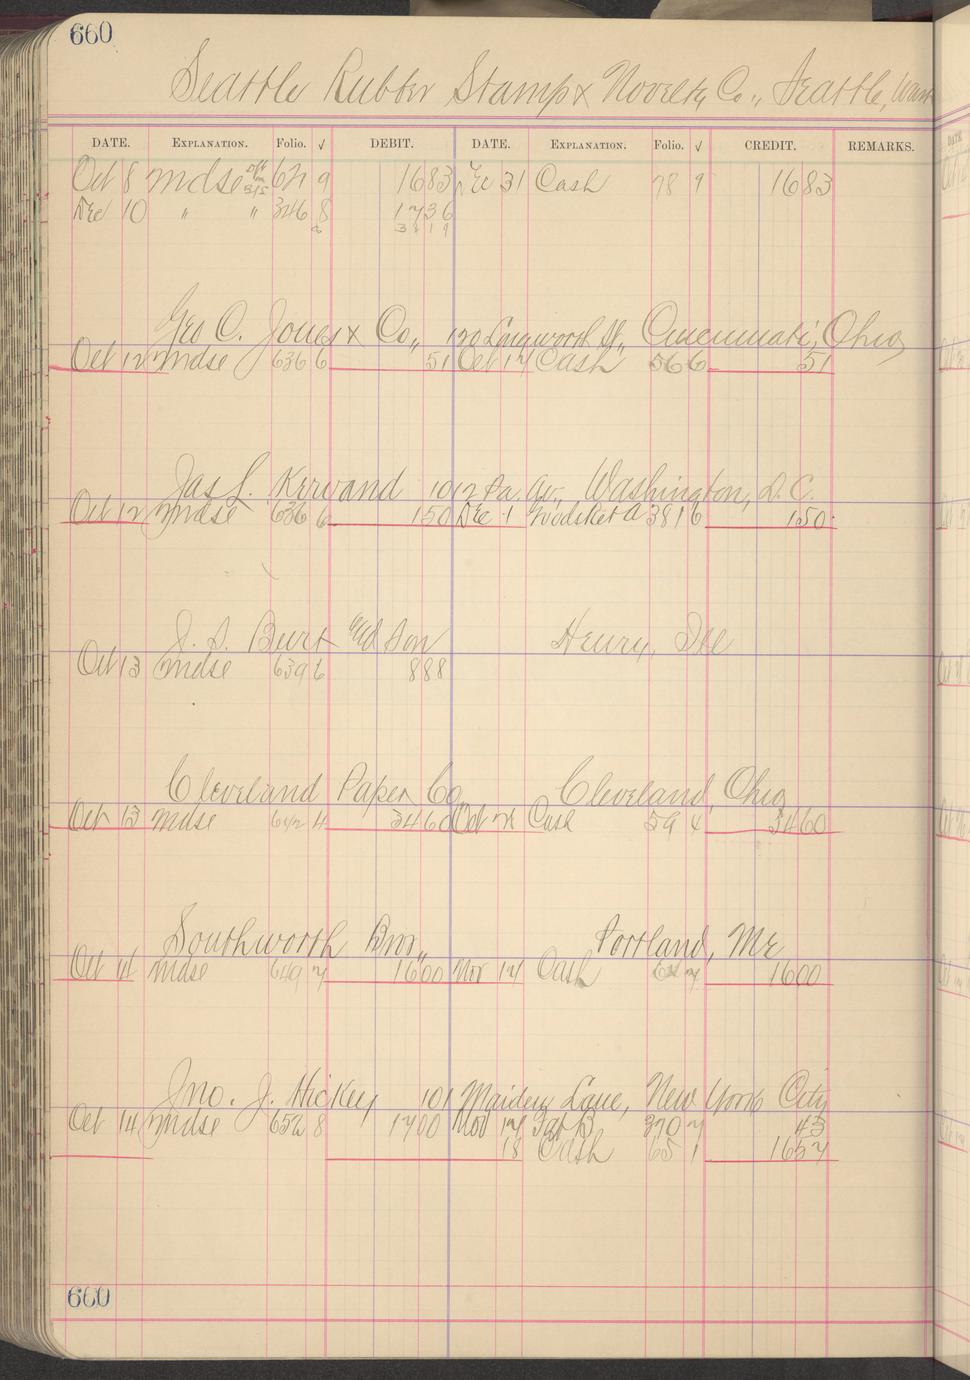 660
Seattle Rubber Stamp & Novelty Co., Seattle, Wash
DATE. EXPLANATION. Folio. √ DEBIT. DATE. EXPLANATION. Folio. √ CREDIT. REMARKS.
Oct 8 Mdse 621 9 1683 Dec 31 Cash 78 9 1683
Dec 10 " " 346 8 1736
3419
Geo C. Jones & Co., 120 Longworth St., Cincinnati, Ohio
Oct 12 Mdse 636 6 51 Oct 17 Cash 56 6 51
Jas L. Kervand 1012 Pa. Av., Washington, D.C.
Oct 12 Mdse 636 6 150 Dec 1 Mdse Ret'd 381 6 150
J. S. Burt and Son Henry, Ill
Oct 13 Mdse 639 6 888
Cleveland Paper Co Cleveland, Ohio
Oct 13 Mdse 642 4 3460 Oct 24 Cash 59 4 3460
Southworth Bros., Portland, Me
Oct 14 Mdse 649 7 1600 Nov 14 Cash 7 1600
Jno. J. Hickey 101 Maiden Lane, New York City
Oct 14 Mdse 652 8 1700 Nov 17 370 7 43
18 Cash 65 1 1657
660